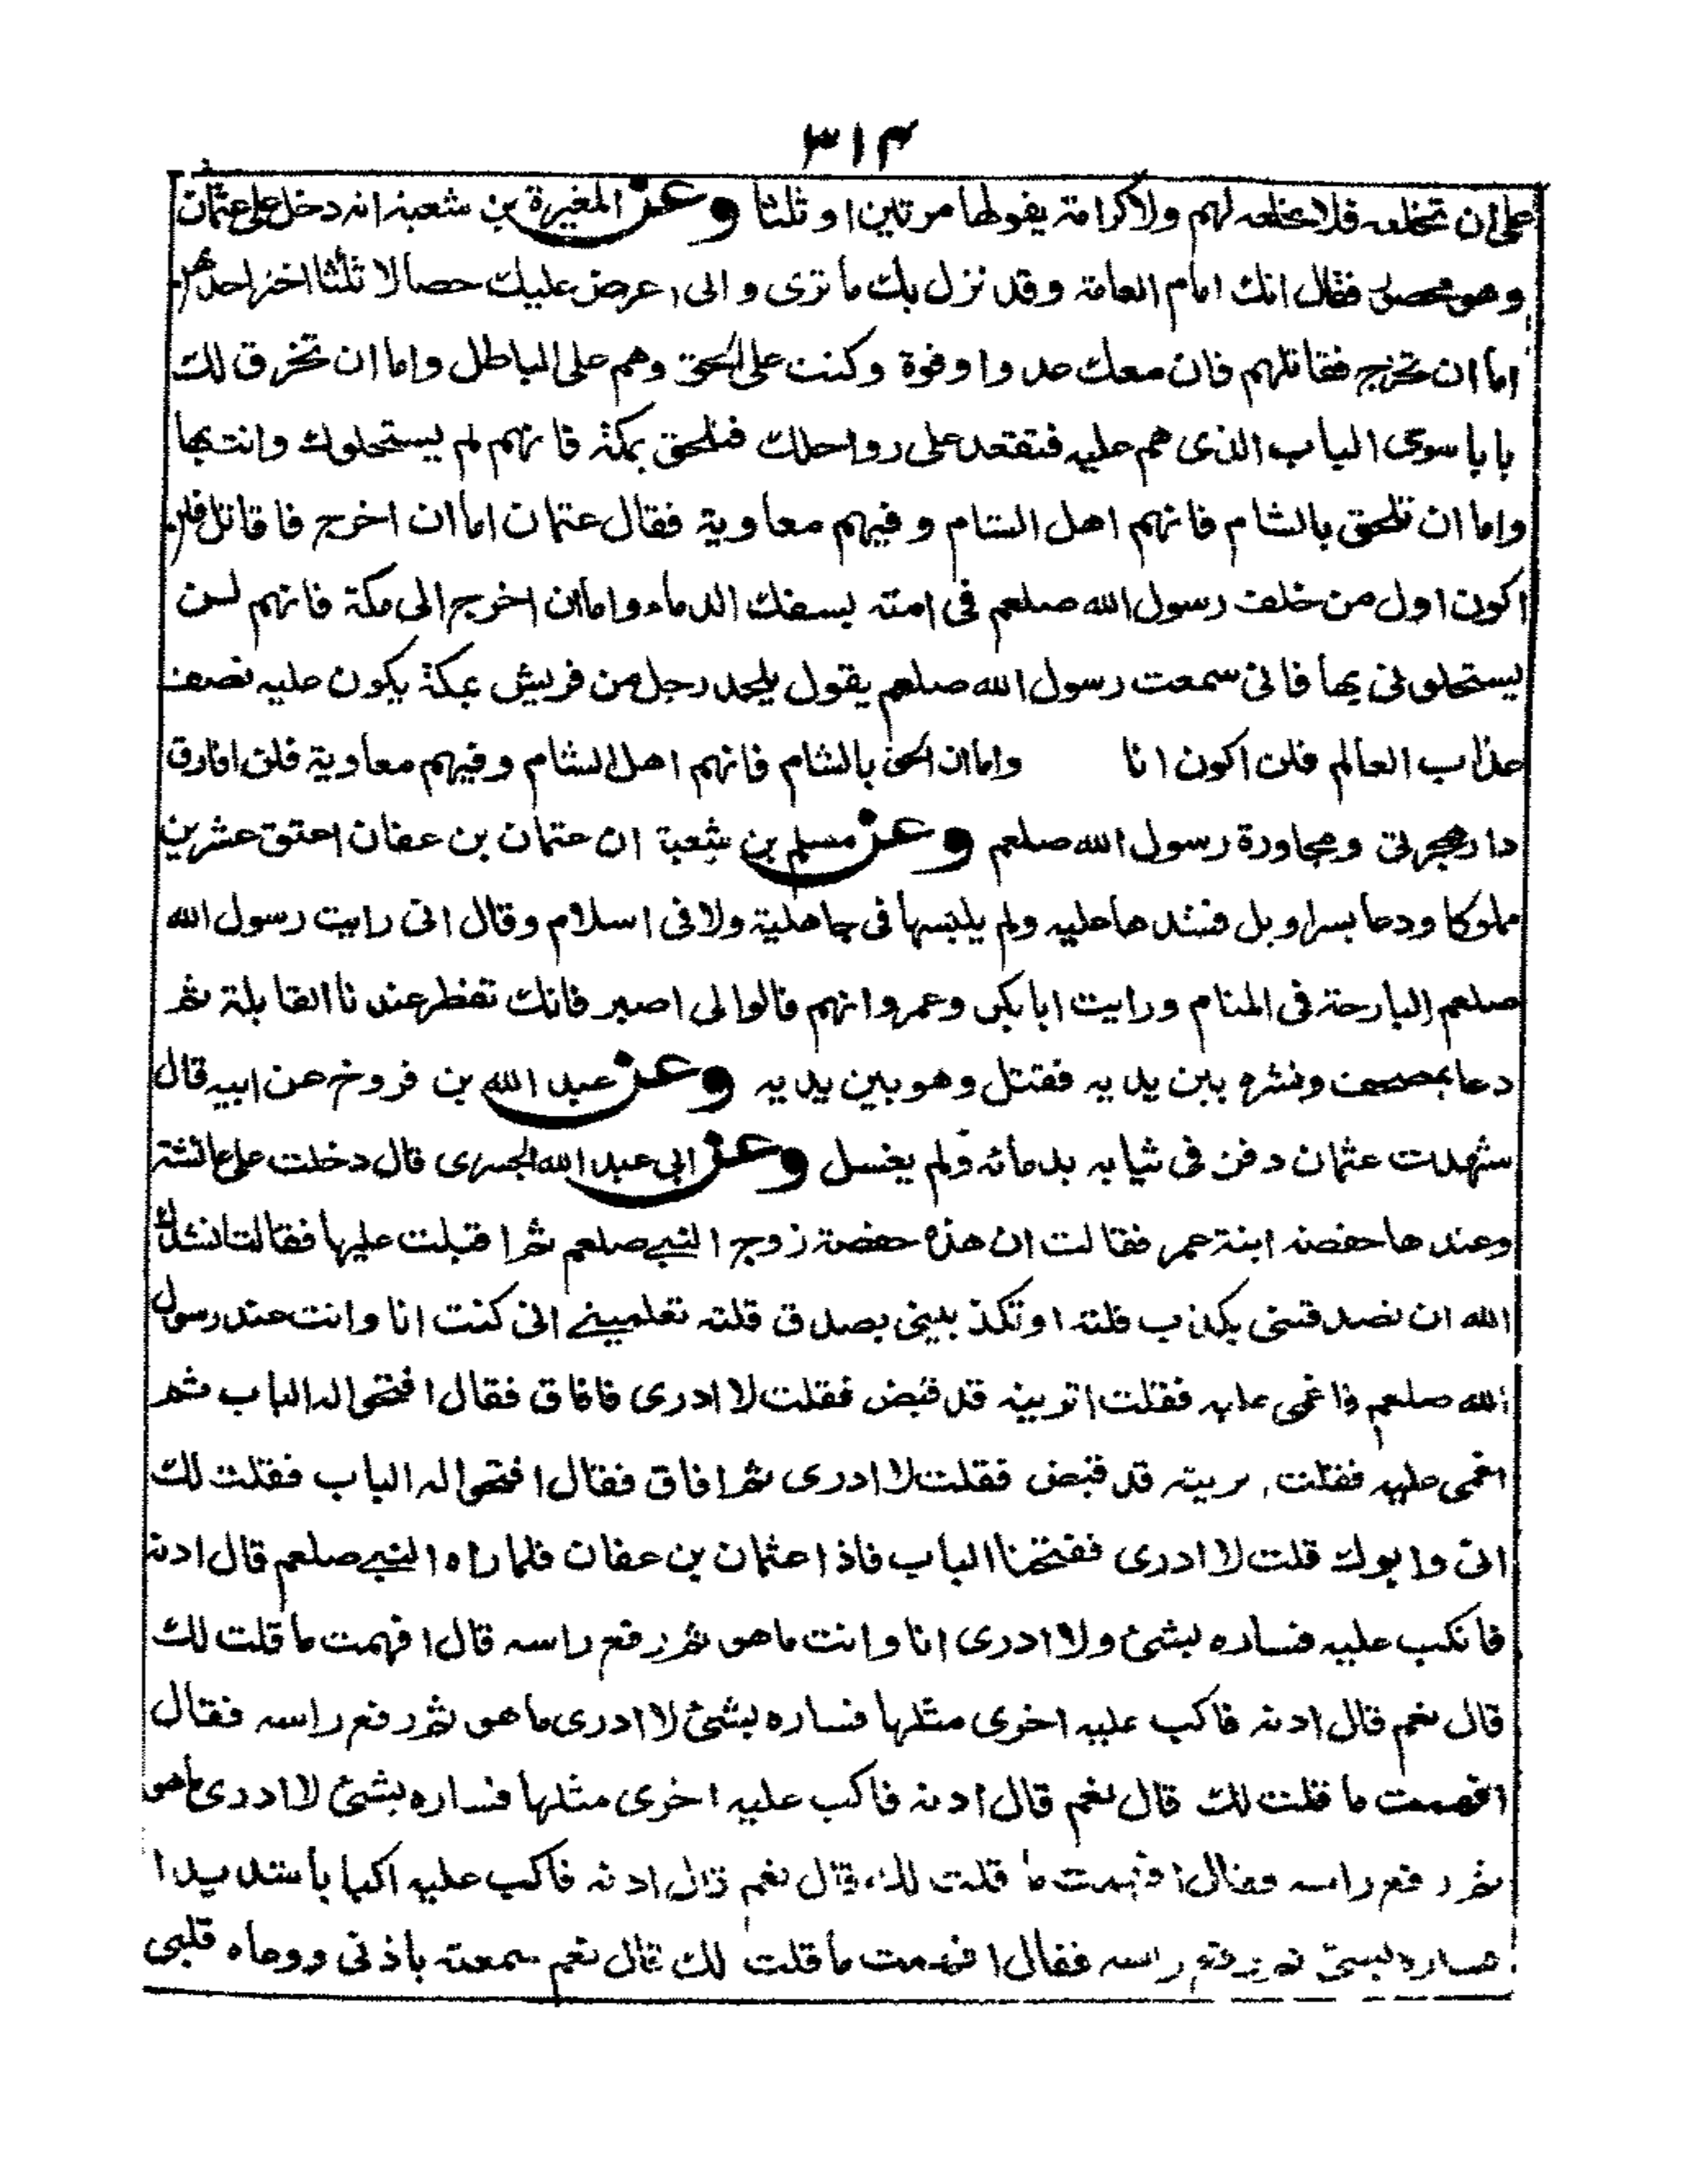 ٣١٣
على ان تخلعه فلا تخلعه لهم ولا كرامة يقولها مرتين او ثلثا وعن المغيرة بن شعبة انه دخل على عثمان
وهو محصور فقال انك امام العامة وقد نزل بك ما ترى وانى اعرض عليك خصالا ثلثا اختر احدهن
اما ان تخرج فقاتلهم فان معك عددا وقوة وكنت على الحق وهم على الباطل واما ان تخرق لك
بابا سوى الباب الذى هم عليه فتقعد على رواحلك فتلحق بمكة فانهم لم يستحلوك وانت بها
واما ان تلحق بالشام فانهم اهل الشام وفيهم معاوية فقال عثمان اما ان اخرج فاقاتل فلن
اكون اول من خلف رسول الله صلعم فى امته بسفك الدماء واما ان اخرج الى مكة فانهم لن
يستحلونى بها فانى سمعت رسول الله صلعم يقول يلحد رجل من قريش بمكة يكون عليه نصف
عذاب العالم فلن اكون انا واما ان الحق بالشام فانهم اهل الشام وفيهم معاوية فلن افارق
دار هجرتى ومجاورة رسول الله صلعم وعن مسلم بن شعبة ان عثمان بن عفان اعتق عشرين
مملوكا ودعا بسراويل فشدها عليه ولم يلبسها فى جاهلية ولا فى اسلام وقال انى رايت رسول الله
صلعم البارحة فى المنام ورايت ابا بكر وعمر وانهم قالوا لى اصبر فانك تفطر عندنا القابلة ثم
دعا بمصحف ونشره بين يديه فقتل وهو بين يديه وعن عبد الله بن فروخ عن ابيه قال
شهدت عثمان دفن فى ثيابه بدمائه ولم يغسل وعن ابى عبد الله الجسرى قال دخلت على عائشة
وعندها حفصة ابنة عمر فقالت ان هذه حفصة زوج النبى صلعم ثم اقبلت عليها فقالت انشدك
الله ان تصدقنى بكذب قلته او تكذبينى بصدق قلته تعلمينى انى كنت انا وانت عند رسول
الله صلعم فاغمى عليه فقلت اتوبينه قد قبض فقلت لا ادرى فافاق فقال افتحى له الباب ثم
اغمى عليه فقلت قد قبض فقلت لا ادرى ثم افاق فقال افتحى له الباب فقلت لك
انى وابوك قلت لا ادرى ففتحنا الباب فاذا عثمان بن عفان فلما راه النبى صلعم قال ادنه
فانكب عليه فساره بشئ ولا ادرى انا وانت ما هو ثم رفع راسه قال افهمت ما قلت لك
قال نعم قال ادنه فاكب عليه اخرى مثلها فساره بشئ لا ادرى ما هو ثم رفع راسه فقال
افهمت ما قلت لك قال نعم قال ادنه فاكب عليه اخرى مثلها فساره بشئ لا ادرى ما هو
ثم رفع راسه فقال افهمت ما قلت لك قال نعم قال ادنه فاكب عليه اكبابا شديدا
فساره بشئ ثم رفع راسه فقال افهمت ما قلت لك قال نعم سمعته باذنى ووعاه قلبى